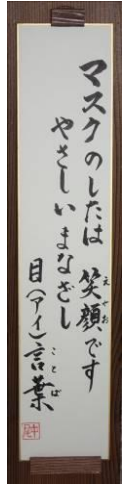 マスクのしたは 笑顔です
やさしいまなざし
目(アイ)言葉